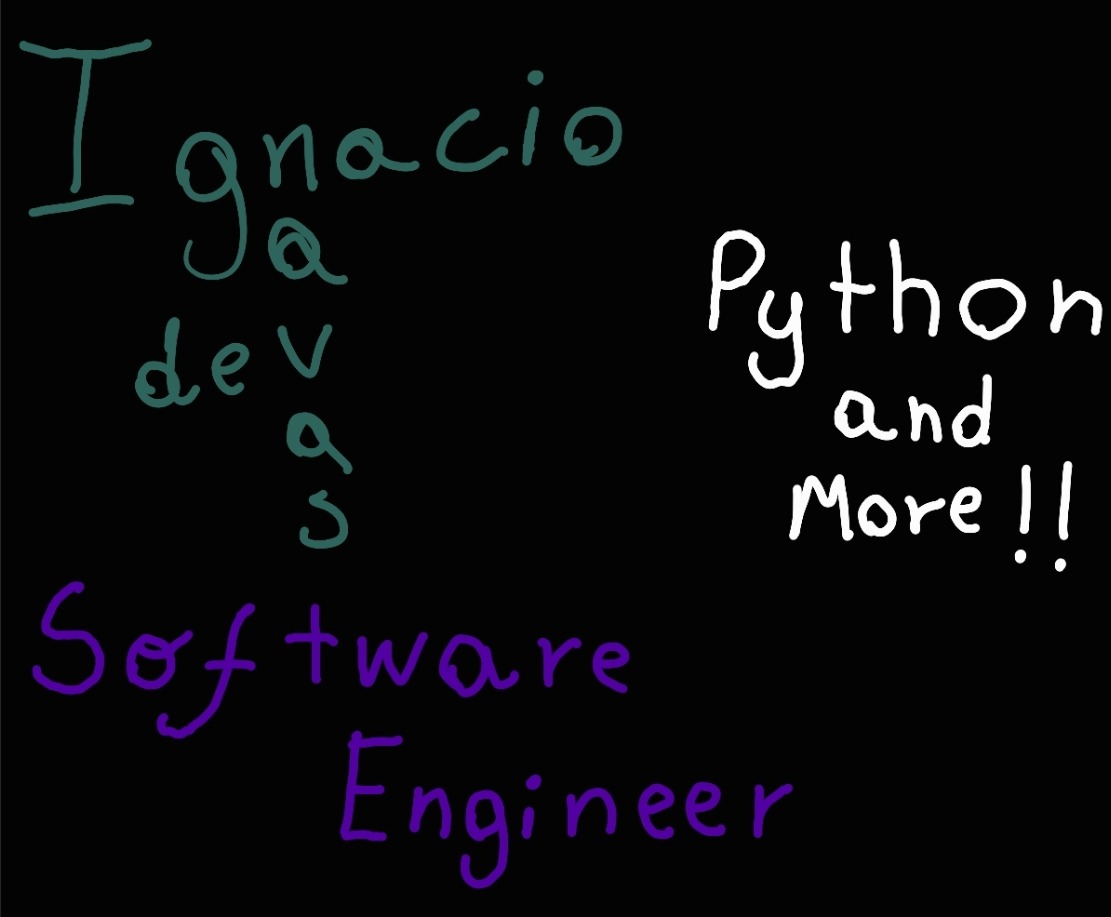 Ignacio
de
navas
Python
and
More!!
Software
Engineer